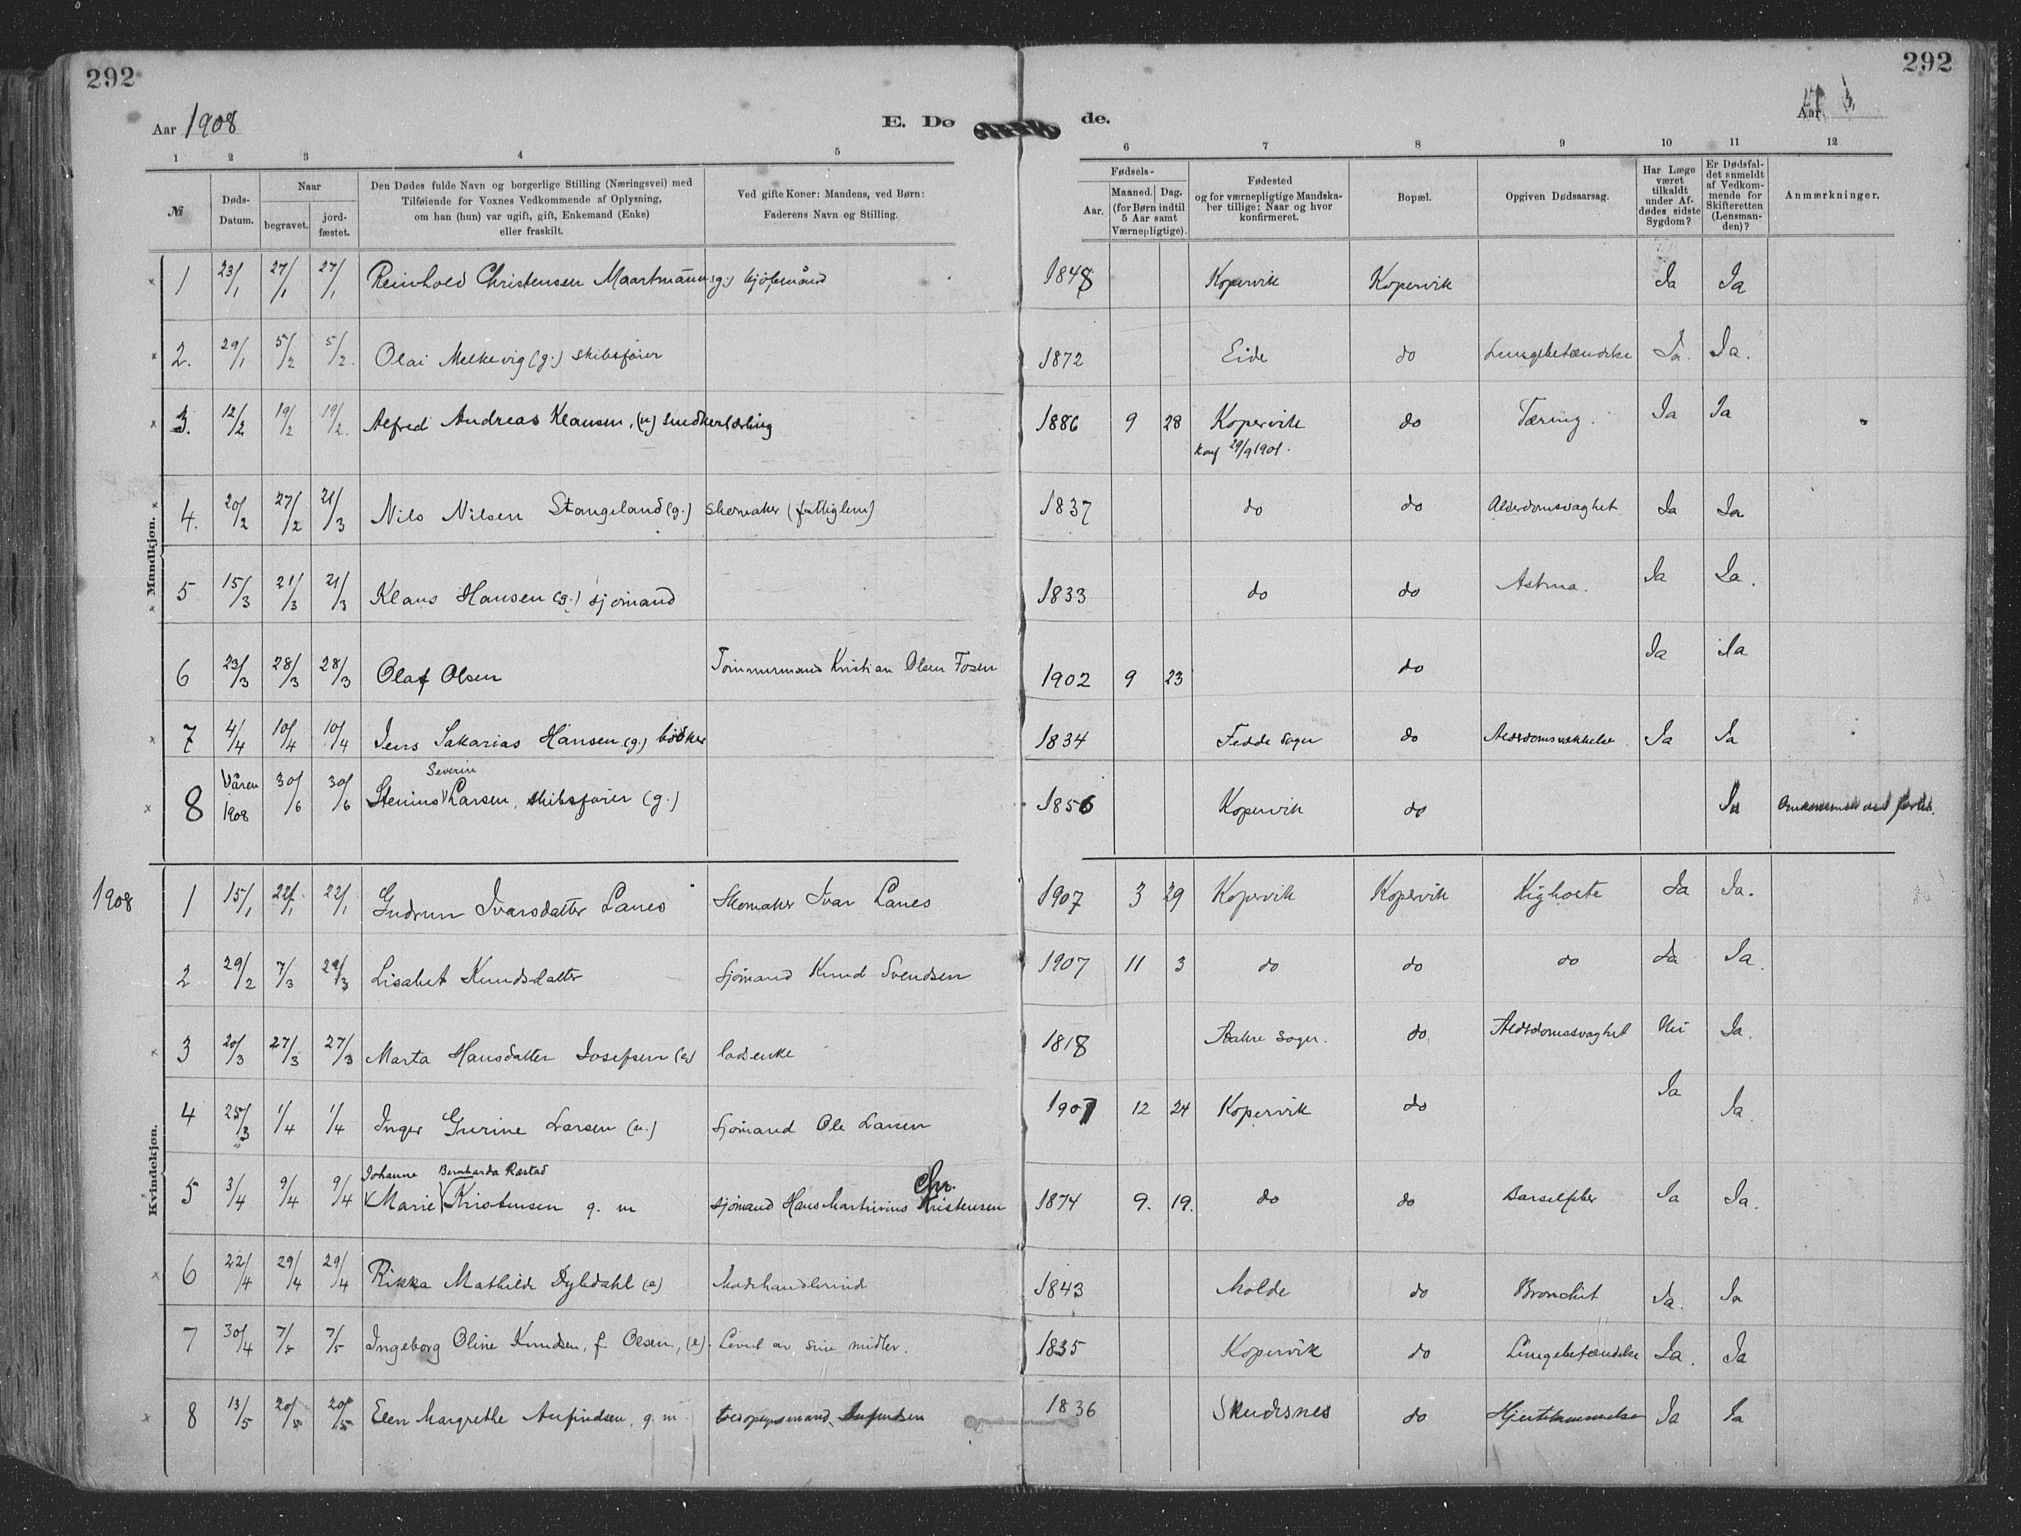 292
292
Aar 1908
E. Dø
de.
Aar
1 2 3 4 5 6 7 8 9 10 11 12
№
Døds-Datum.
Naar
begravet.
jordfæstet.
Den Dødes fulde Navn og borgerlige Stilling (Næringsvei) med
Tilføiende for Voxnes Vedkommende af Oplysning,
om han (hun) var ugift, gift, Enkemand (Enke)
eller fraskilt.
Ved gifte Koner: Mandens, ved Børn:
Faderens Navn og Stilling.
Fødsels-
Aar.
Maaned. Dag.
(for Børn indtil
5 Aar samt
Værnepligtige).
Fødested
og for værnepligtige Mandska-
ber tillige: Naar og hvor
konfirmeret.
Bopæl.
Opgiven Dødsaarsag.
Har Læge
været
tilkaldt
under Af-
dødes sidste
Sygdom?
Er Dødsfal-
det anmeldt
af Vedkom-
mende for
Skifteretten
(Lensman-
den)?
Anmærkninger.
Mandkjøn.
1 23/1 27/1 27/1 Reinhold Christensen Maartmann (g.) kjøbmand 1848 Kopervik Kopervik Ja Ja
2. 29/1 5/2 5/2. Olai Melkevig (g.) skibsfører 1872 Eide do Lungebetændelse Ja. Ja.
3. 12/2 19/2 19/2. Alfred Andreas Klausen, (u) snedkerlærling 1886 9 28 Kopervik do Tæring. Ja Ja
konf 29/9 1901.
4. 20/2 27/2 21/3 Nils Nilsen Stangeland (g.) skomaker (fattiglem) 1837 do do Alderdomsvaghet Ja Ja
5 15/3 21/3 21/3 Klaus Hansen (g.) sjømand 1833 do do Astma. Ja Ja.
6 23/3 28/3 28/3 Olaf Olsen Tømmermand Kristian Olsen Fosen 1902 9 23 do Ja Ja
7 4/4 10/4 10/4 Jens Sakarias Hansen (g.) bødker 1834 Fedde Sogn do Ja Ja
Severin
8 Våren 1908 30/6 30/6 Stenius Larsen, skibsfører (g.) 1856 Kopervik do Ja
1908
Kvindekjøn.
1 15/1 22/1 22/1 Gudrun Ivarsdatter Lanes Skomaker Ivar Lanes 1907 3 29 Kopervik Kopervik Kighoste Ja Ja.
2 29/2 7/3 29/3 Lisabet Knudsdatter Sjømand Knud Svendsen 1907 11 3 do do do Ja Ja.
3 20/3 27/3 27/3 Marta Hansdatter Josefsen (e) losenke 1818 Aakre Sogn. do Alderdomssvaghet Nei Ja.
4 25/3 1/4 1/4 Inger Gurine Larsen (u.) Sjømand Ole Larsen 1907 12 24 Kopervik do Ja Ja.
Johanne Bernharda Røstad
5 3/4 9/4 9/4 Marie Kristensen g. m sjømand Hans Martinius Chr. Kristensen 1874 9. 19. do do Barselfeber Ja Ja.
6 22/4 29/4 29/4 Rikka Mathilde Dybdahl (e) Modehandlerinde 1843 Molde do Bronchit Ja. Ja
7 30/4 7/5 7/5 Ingeborg Oline Knudsen, f Olsen, (e). Levet av sine midler. 1835 Kopervik do Lungebetændelse Ja. Ja
8 13/5 20/5 20/5 Elen Margrethe Anfindsen, g. m Anfindsen 1836 Skudesnes do Ja Ja